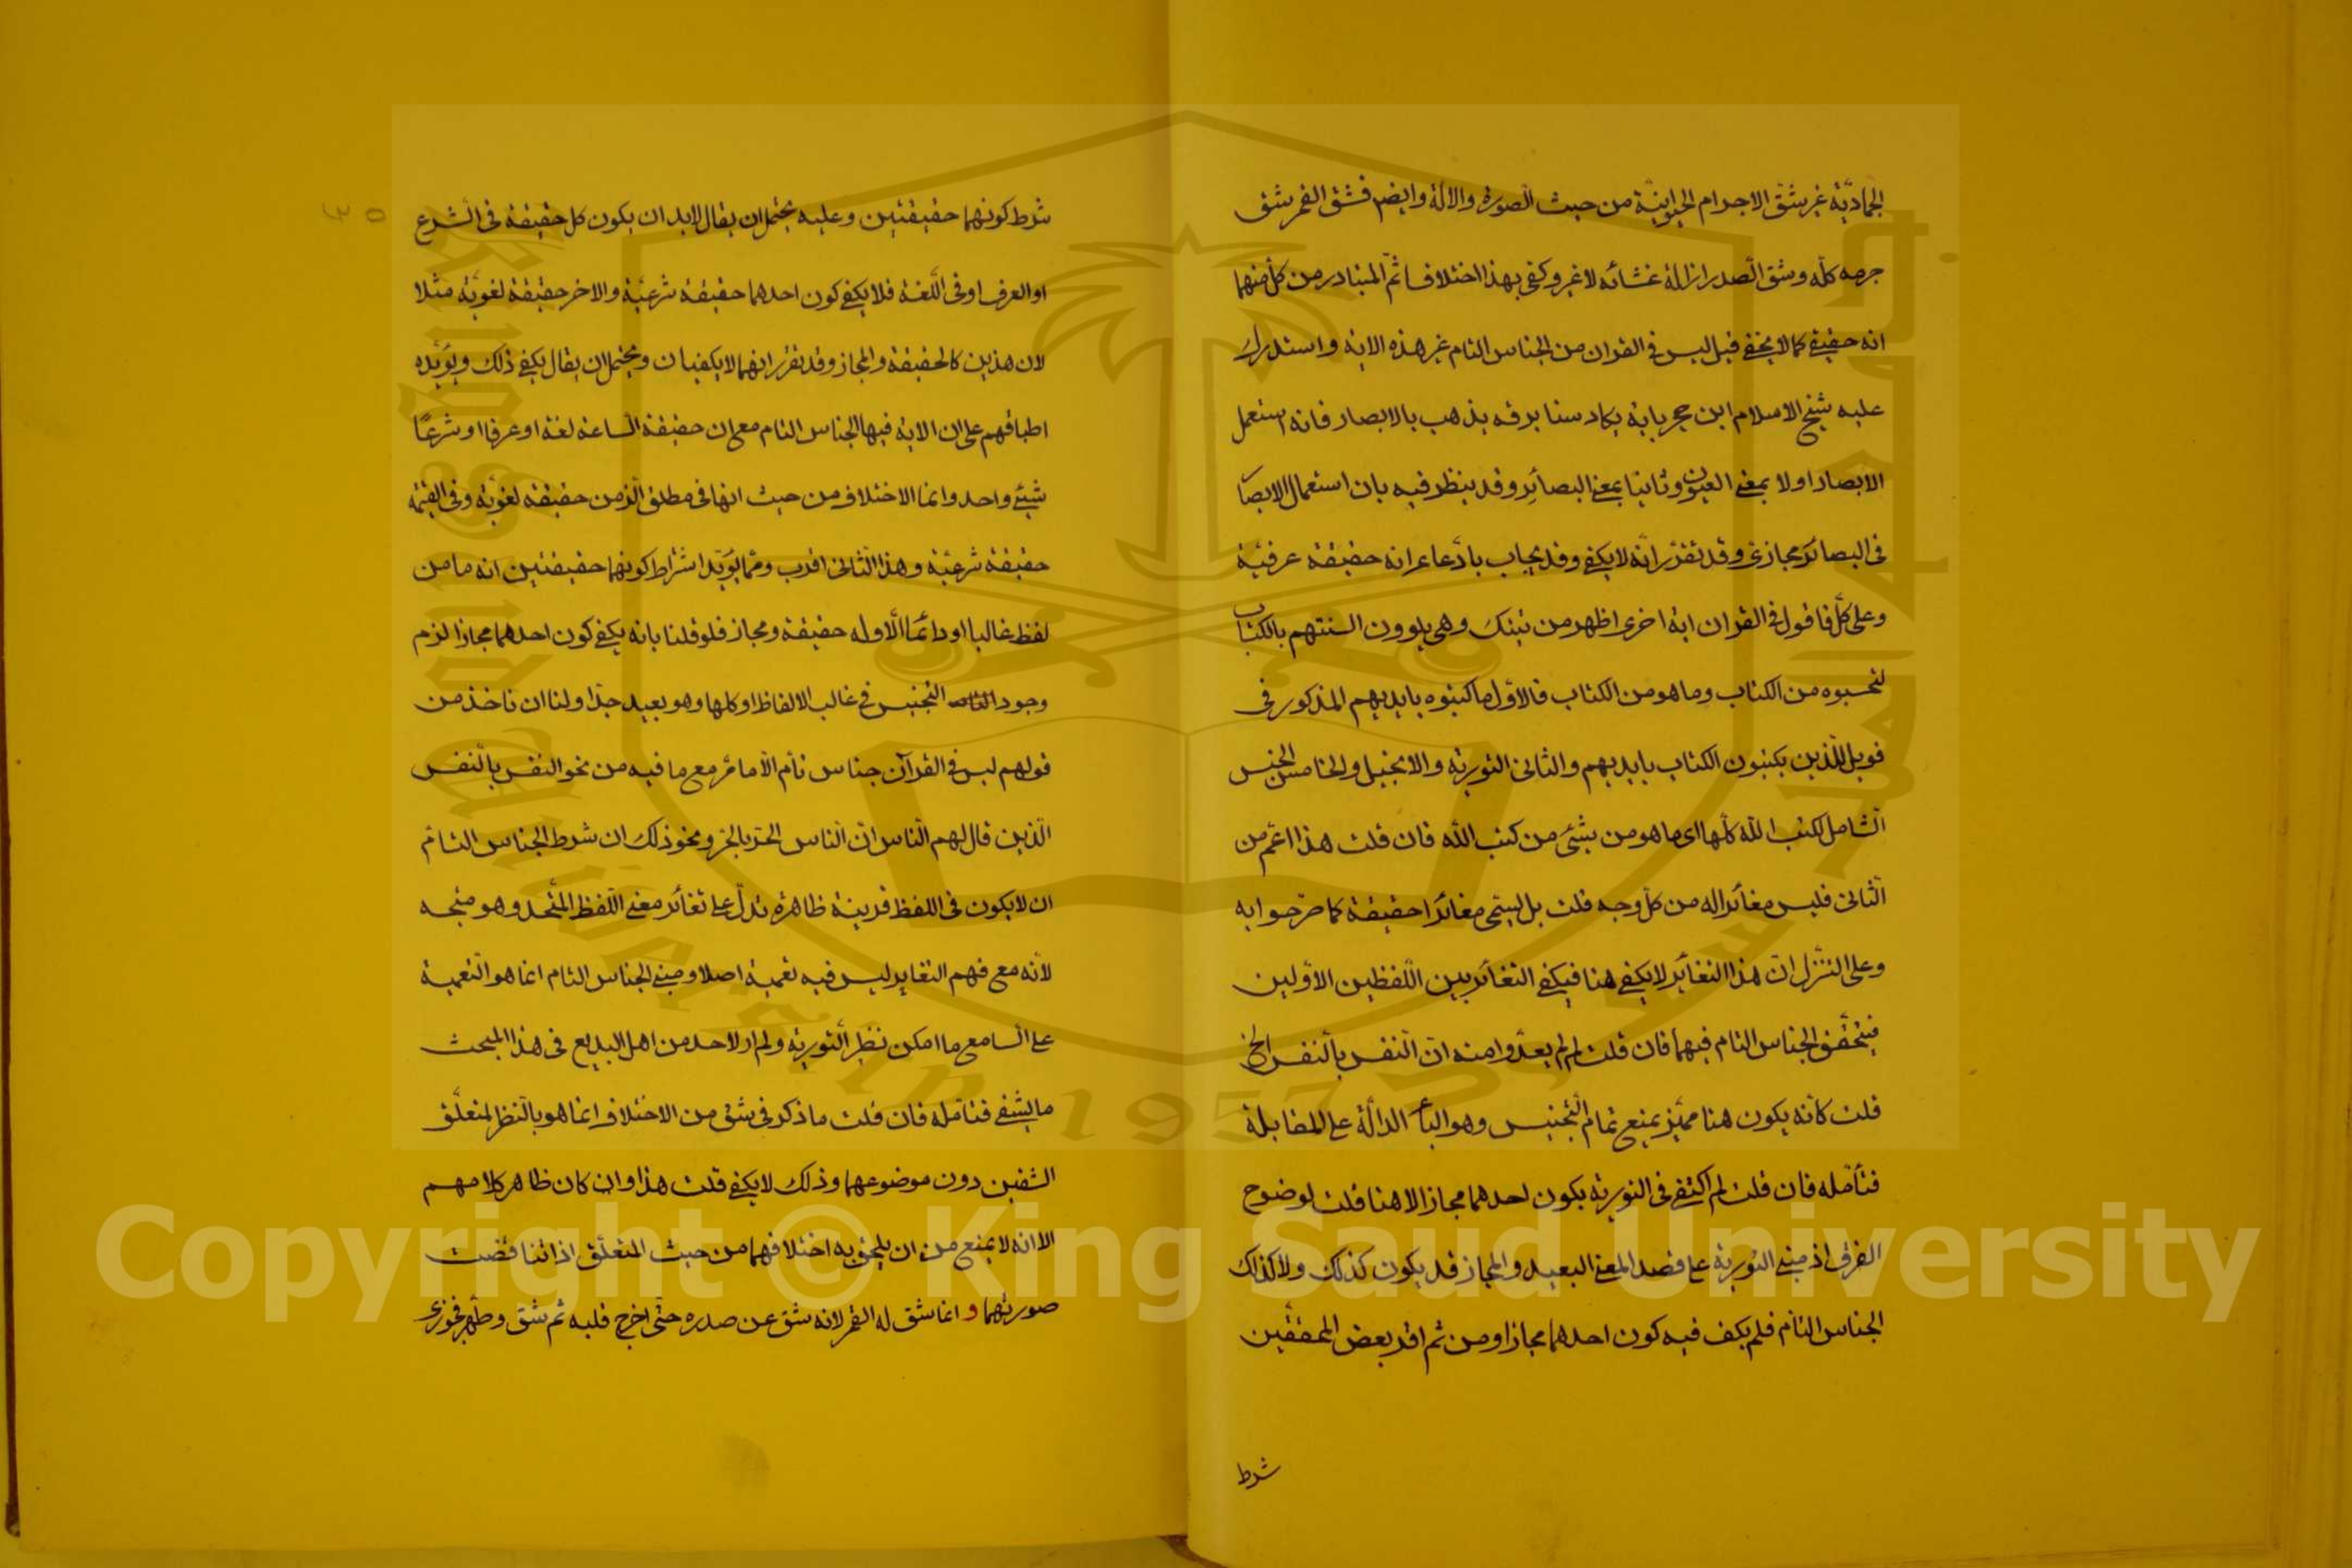 الجماديّة غير شقّ الاجرام الحيوانيّة من حيث الصورة والالة وايضم فشق القمر شق
جرمه كلّه وشق الصدر ازالة غشائه لاغير وكفى بهذا اختلافا ثمّ المتبادر من كل منهما
انه حقيقي كما لا يخفى قيل ليس في القران من الجناس التام غير هذه الاية واستدرك
عليه شيخ الاسلام ابن حجر باية يكاد سنا برقه يذهب بالابصار فانه استعمل
الابصار اولا بمعنى العيون وثانيا بمعنى البصائر وقد ينظر فيه بان استعمال الابصار
في البصائر مجازي وقد تقرّر انّه لا يكفي وقد يجاب بادّعاء انه حقيقة عرفية
وعلى كلّ فاقول في القران اية اخرى اظهر من تينك وهي يلوون السنتهم بالكتاب
لتحسبوه من الكتاب وما هو من الكتاب فالاوّل ما كتبوه بايديهم المذكور في
فويل للّذين يكتبون الكتاب بايديهم والثاني التورية والانجيل والخامس الجنس
الشامل لكتب الله كلّها اي ما هو من شئ من كتب الله فان قلت هذا اعمّ من
الثاني فليس مغائرا له من كلّ وجه قلت بل يسمّى مغائرا حقيقة كما صرّحوا به
وعلى التنزّل انّ هذا التغائر لا يكفي هنا فيكفي التغائر بين اللّفظين الاوّلين
فيتحقّق الجناس التام فيهما فان قلت لم لم يعدّوا منه انّ النفس بالنفس الخ
قلت كأنه يكون هنا مميّز يمنع تمام التجنيس وهو الباء الدالّة على المقابلة
فتأمّله فان قلت لم اكتفي في التورية بكون احدهما مجازا لا هنا قلت لوضوح
الفرق اذ مبنى التورية على قصد المعنى البعيد والمجاز قد يكون كذلك ولا كذلك
الجناس التام فلم يكف فيه كون احدهما مجازا ومن ثم اقر بعض المحققين
شرط
٣٥
شرط كونهما حقيقتين وعليه يحتمل ان يقال لابد ان يكون كل حقيقة في الشرع
او العرف او في اللّغة فلا يكفي كون احدهما حقيقة شرعيّة والاخر حقيقة لغويّة مثلا
لان هذين كالحقيقة والمجاز وقد تقرّر انهما لا يكفيان ويحتمل ان يقال يكفي ذلك ويؤيّده
اطباقهم على ان الاية فيها الجناس التام مع ان حقيقة الساعة لغة او عرفا او شرعا
شيئ واحد وانما الاختلاف من حيث انها في مطلق الزمن حقيقة لغويّة وفي القيمة
حقيقة شرعيّة وهذا الثاني اقرب وممّا يؤيّد اشتراط كونهما حقيقتين انه ما من
لفظ غالبا او دائما الّا وله حقيقة ومجاز فلو قلنا بانه يكفي كون احدهما مجازا لزم
وجود التجنيس في غالب الالفاظ او كلها وهو بعيد جدّا ولنا ان ناخذ من
قولهم ليس في القرآن جناس تام الّا ما مرّ مع ما فيه من نحو النفس بالنفس
الّذين قال لهم النّاس انّ النّاس الحرّ بالحرّ ونحو ذلك ان شرط الجناس التام
ان لا يكون في اللفظ قرينة ظاهرة تدلّ على تغائر معنى اللّفظ المتّحد وهو متّجه
لانّه مع فهم التغاير ليس فيه تعمية اصلا ومبنى الجناس التام انما هو التعمية
على السامع ما امكن نظير التورية ولم ار لاحد من اهل البديع في هذا المبحث
ما يشفي فتامّله فان قلت ما ذكر في شق من الاختلاف انما هو بالنظر لمتعلّق
الشقين دون موضوعهما وذلك لا يكفي قلت هذا وان كان ظاهر كلامهم
الا انه لا يمنع من ان يلحق به اختلافهما من حيث المتعلّق اذا تناقضت
صورتهما و انما شق له القمر لانه شق عن صدره حتّى اخرج قلبه ثم شق وطهر فجوزي